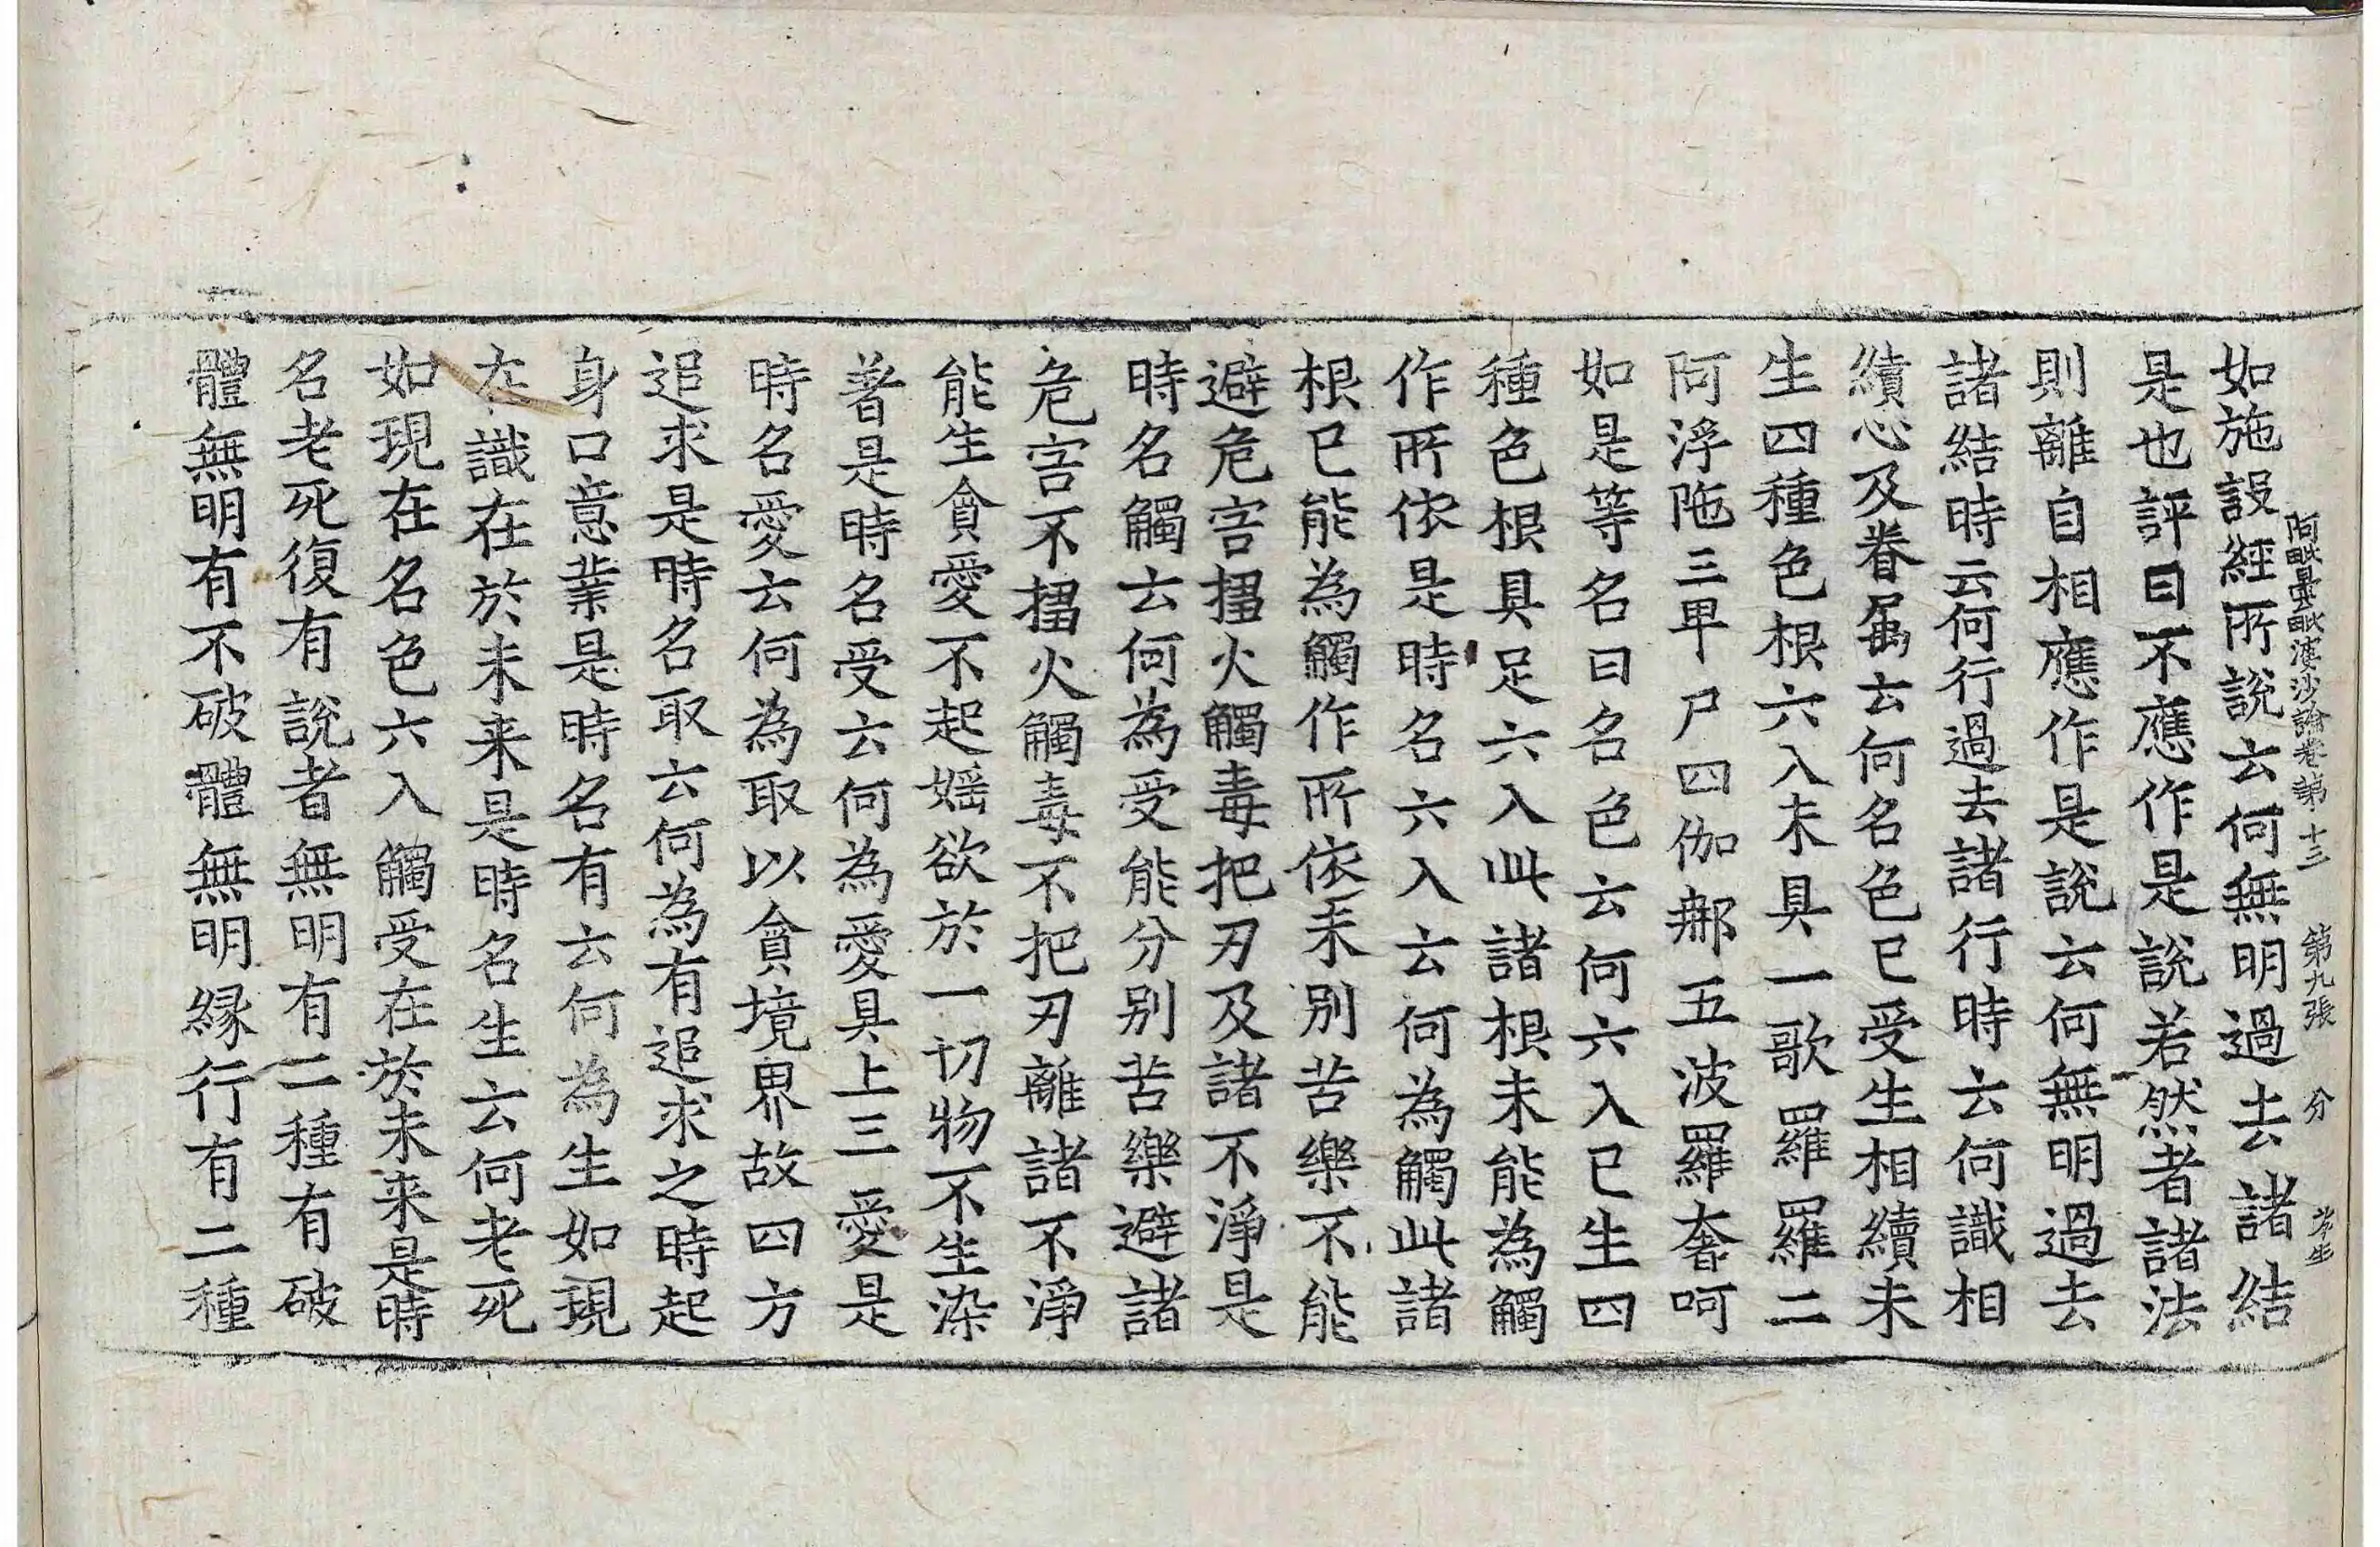 阿毗曇毗婆沙論卷第十三　第九張　分
如施設經所說云何無明過去諸結
是也評曰不應作是說若然者諸法
則離自相應作是說云何無明過去
諸結時云何行過去諸行時云何識相
續心及眷屬云何名色已受生相續未
生四種色根六入未具一歌羅羅二
阿浮陁三卑尸四伽那五波羅奢呵
如是等名曰名色云何六入已生四
種色根具足六入此諸根未能為觸
作所依是時名六入云何為觸此諸
根已能為觸作所依未別苦樂不能
避危害㨪火觸毒把刃及諸不淨是
時名觸云何為受能分別苦樂避諸
危害不㨪火觸毒不把刃離諸不淨
能生貪愛不起婬欲於一切物不生染
著是時名受云何為愛具上三愛是
時名愛云何為取以貪境界故四方
追求是時名取云何為有追求之時起
身口意業是時名有云何為生如現
在識在於未来是時名生云何老死
如現在名色六入觸受在於未来是時
名老死復有說者無明有二種有破
體無明有不破體無明緣行有二種